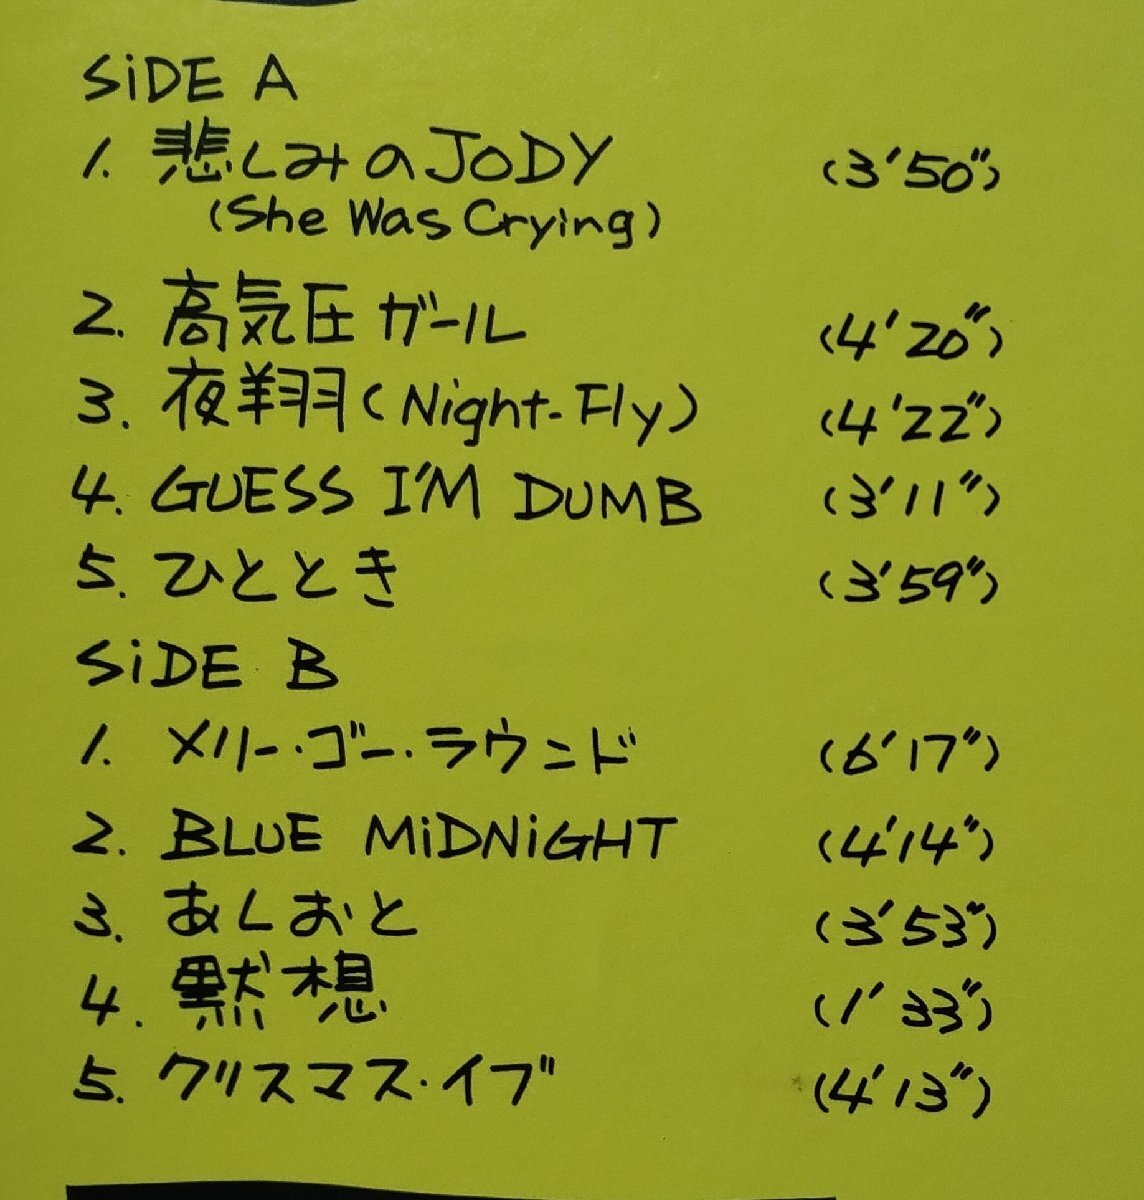 SiDE A
1. 悲しみのJODY (3'50")
(She Was Crying)
2. 高気圧ガール (4'20")
3. 夜翔(Night-Fly) (4'22")
4. GUESS I'M DUMB (3'11")
5. ひととき (3'59")
SiDE B
1. メリー・ゴー・ラウンド (6'17")
2. BLUE MiDNiGHT (4'14")
3. あしおと (3'53")
4. 黙想 (1'33")
5. クリスマス・イブ (4'13")